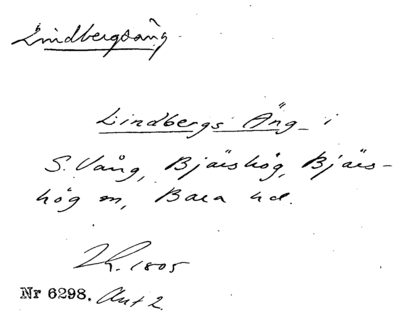 Lindbergsäng
Lindbergs Äng i
S. Vång, Bjäishög, Bjäis-
hög sn, Bara hd.
1805
Nr 6298. Akt 2.